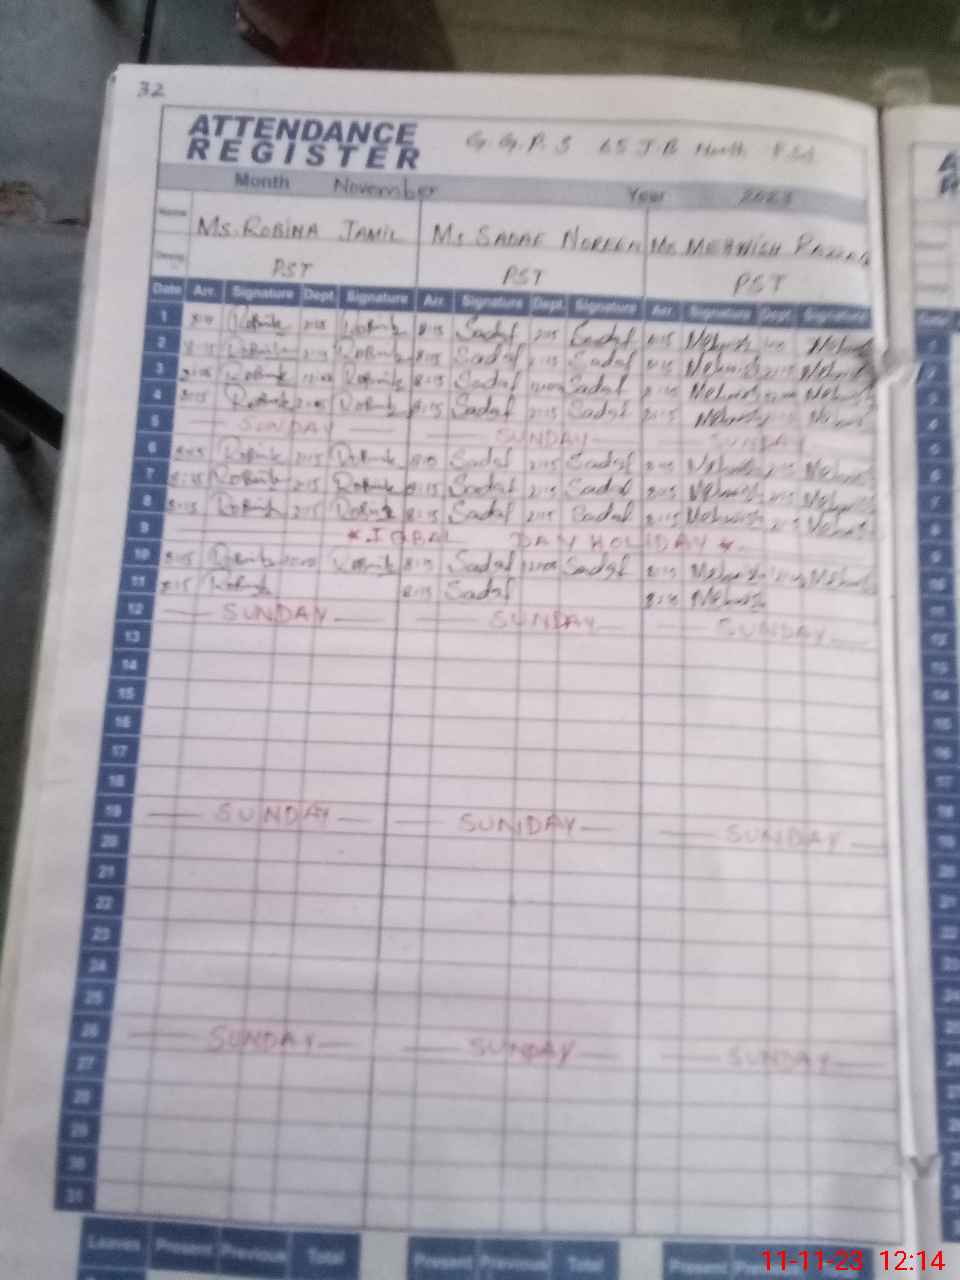 32
ATTENDANCE
REGISTER
G. G. P. S 65 J.B
Month November Year 2023
Name Ms. ROBINA JAMIL Ms SADAF NOREEN Ms. MEHWISH
PST PST PST
Date Arr. Signature Dept. Signature Arr. Signature Dept. Signature Arr. Signature Dept. Signature
1 Robina Robina 8:15 Sadaf 2:15 Sadaf 8:15 Mehwish Mehwish
2 8:15 Robina 2:15 Robina 8:15 Sadaf 2:15 Sadaf 8:15 Mehwish 2:15 Mehwish
3 Robina 12:00 Robina 8:15 Sadaf 12:00 Sadaf 8:15 Mehwish Mehwish
4 8:15 Robina Robina 8:15 Sadaf 2:15 Sadaf Mehwish Mehwish
5 SUNDAY SUNDAY SUNDAY
6 8:15 Robina 2:15 Robina Sadaf 2:15 Sadaf 8:15 Mehwish 2:15 Mehwish
7 8:15 Robina 2:15 Robina 8:15 Sadaf 2:15 Sadaf 8:15 Mehwish 2:15 Mehwish
8 8:15 Robina 2:15 Robina 8:15 Sadaf 2:15 Sadaf 8:15 Mehwish 2:15 Mehwish
9 * IQBAL DAY HOLIDAY *
10 8:15 Robina Robina 8:15 Sadaf 12:00 Sadaf 8:15 Mehwish Mehwish
11 8:15 Robina 8:15 Sadaf Mehwish
12 SUNDAY SUNDAY SUNDAY
13
14
15
16
17
18
19 SUNDAY SUNDAY SUNDAY
20
21
22
23
24
25
26 SUNDAY SUNDAY SUNDAY
27
28
29
30
31
Leaves Present Previous Total Present Previous Total Present Previous
11-11-23 12:14